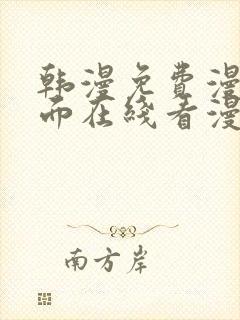 韩漫免费漫
而在线看漫
南方岸